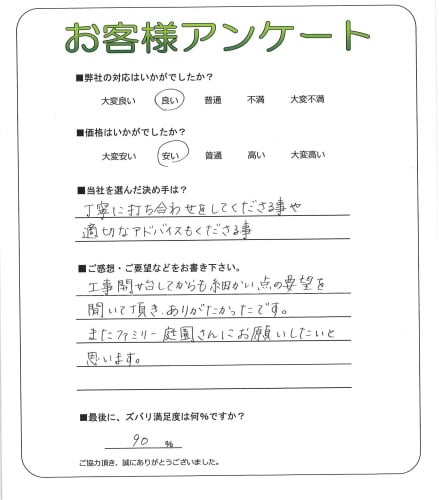 お客様アンケート
■弊社の対応はいかがでしたか？
大変良い　良い　普通　不満　大変不満
■価格はいかがでしたか？
大変安い　安い　普通　高い　大変高い
■当社を選んだ決め手は？
丁寧に打ち合わせをしてくださる事や
適切なアドバイスもくださる事
■ご感想・ご要望などをお書き下さい。
工事開始してからも細かい点の要望を
聞いて頂き、ありがたかったです。
またファミリー庭園さんにお願いしたいと
思います。
■最後に、ズバリ満足度は何%ですか？
90 %
ご協力頂き、誠にありがとうございました。